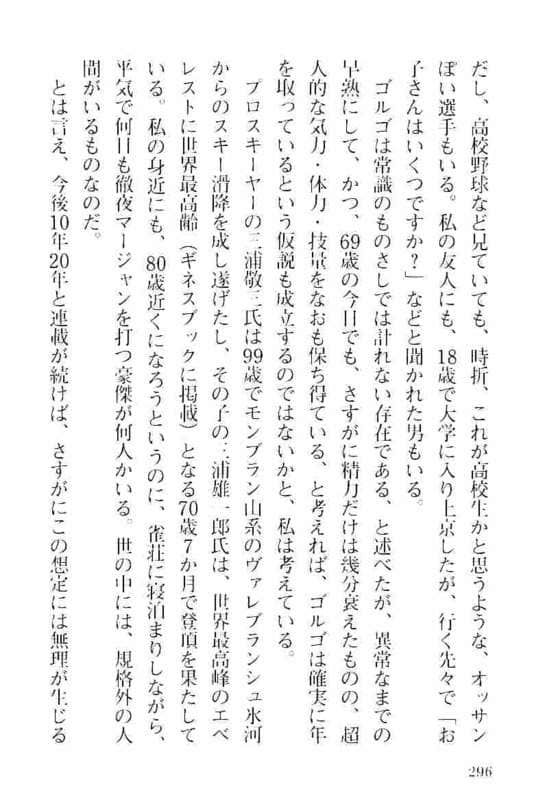 だし、高校野球など見ていても、時折、これが高校生かと思うような、オッサン
ぽい選手もいる。私の友人にも、18歳で大学に入り上京したが、行く先々で「お
子さんはいくつですか？」などと聞かれた男もいる。
ゴルゴは常識のものさしでは計れない存在である、と述べたが、異常なまでの
早熟にして、かつ、69歳の今日でも、さすがに精力だけは幾分衰えたものの、超
人的な気力・体力・技量をなおも保ち得ている、と考えれば、ゴルゴは確実に年
を取っているという仮説も成立するのではないかと、私は考えている。
プロスキーヤーの三浦敬三氏は99歳でモンブラン山系のヴァレブランシュ氷河
からのスキー滑降を成し遂げたし、その子の三浦雄一郎氏は、世界最高峰のエベ
レストに世界最高齢（ギネスブックに掲載）となる70歳7か月で登頂を果たして
いる。私の身近にも、80歳近くになろうというのに、雀荘に寝泊まりしながら、
平気で何日も徹夜マージャンを打つ豪傑が何人かいる。世の中には、規格外の人
間がいるものなのだ。
とは言え、今後10年20年と連載が続けば、さすがにこの想定には無理が生じる
296